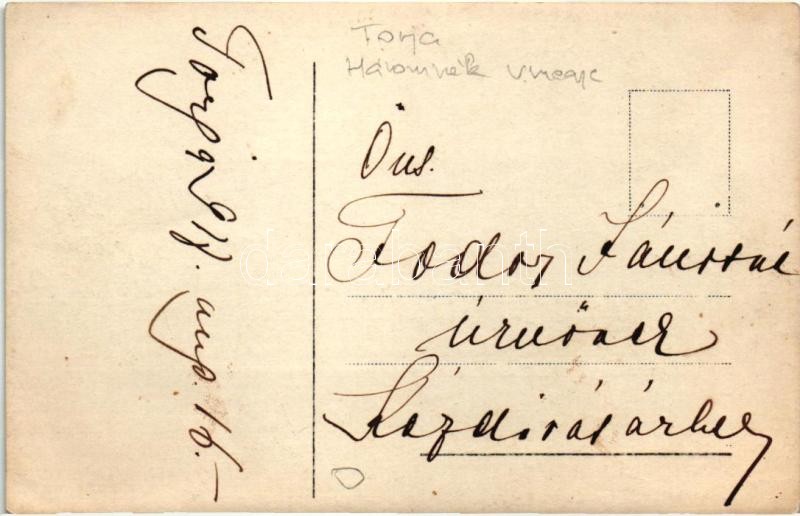 Torja
Háromszék vmegye
Torja 918. aug. 16.-
Öns.
Fodor Jánosné
úrnőnek
Kézdivásárhely
darabanth